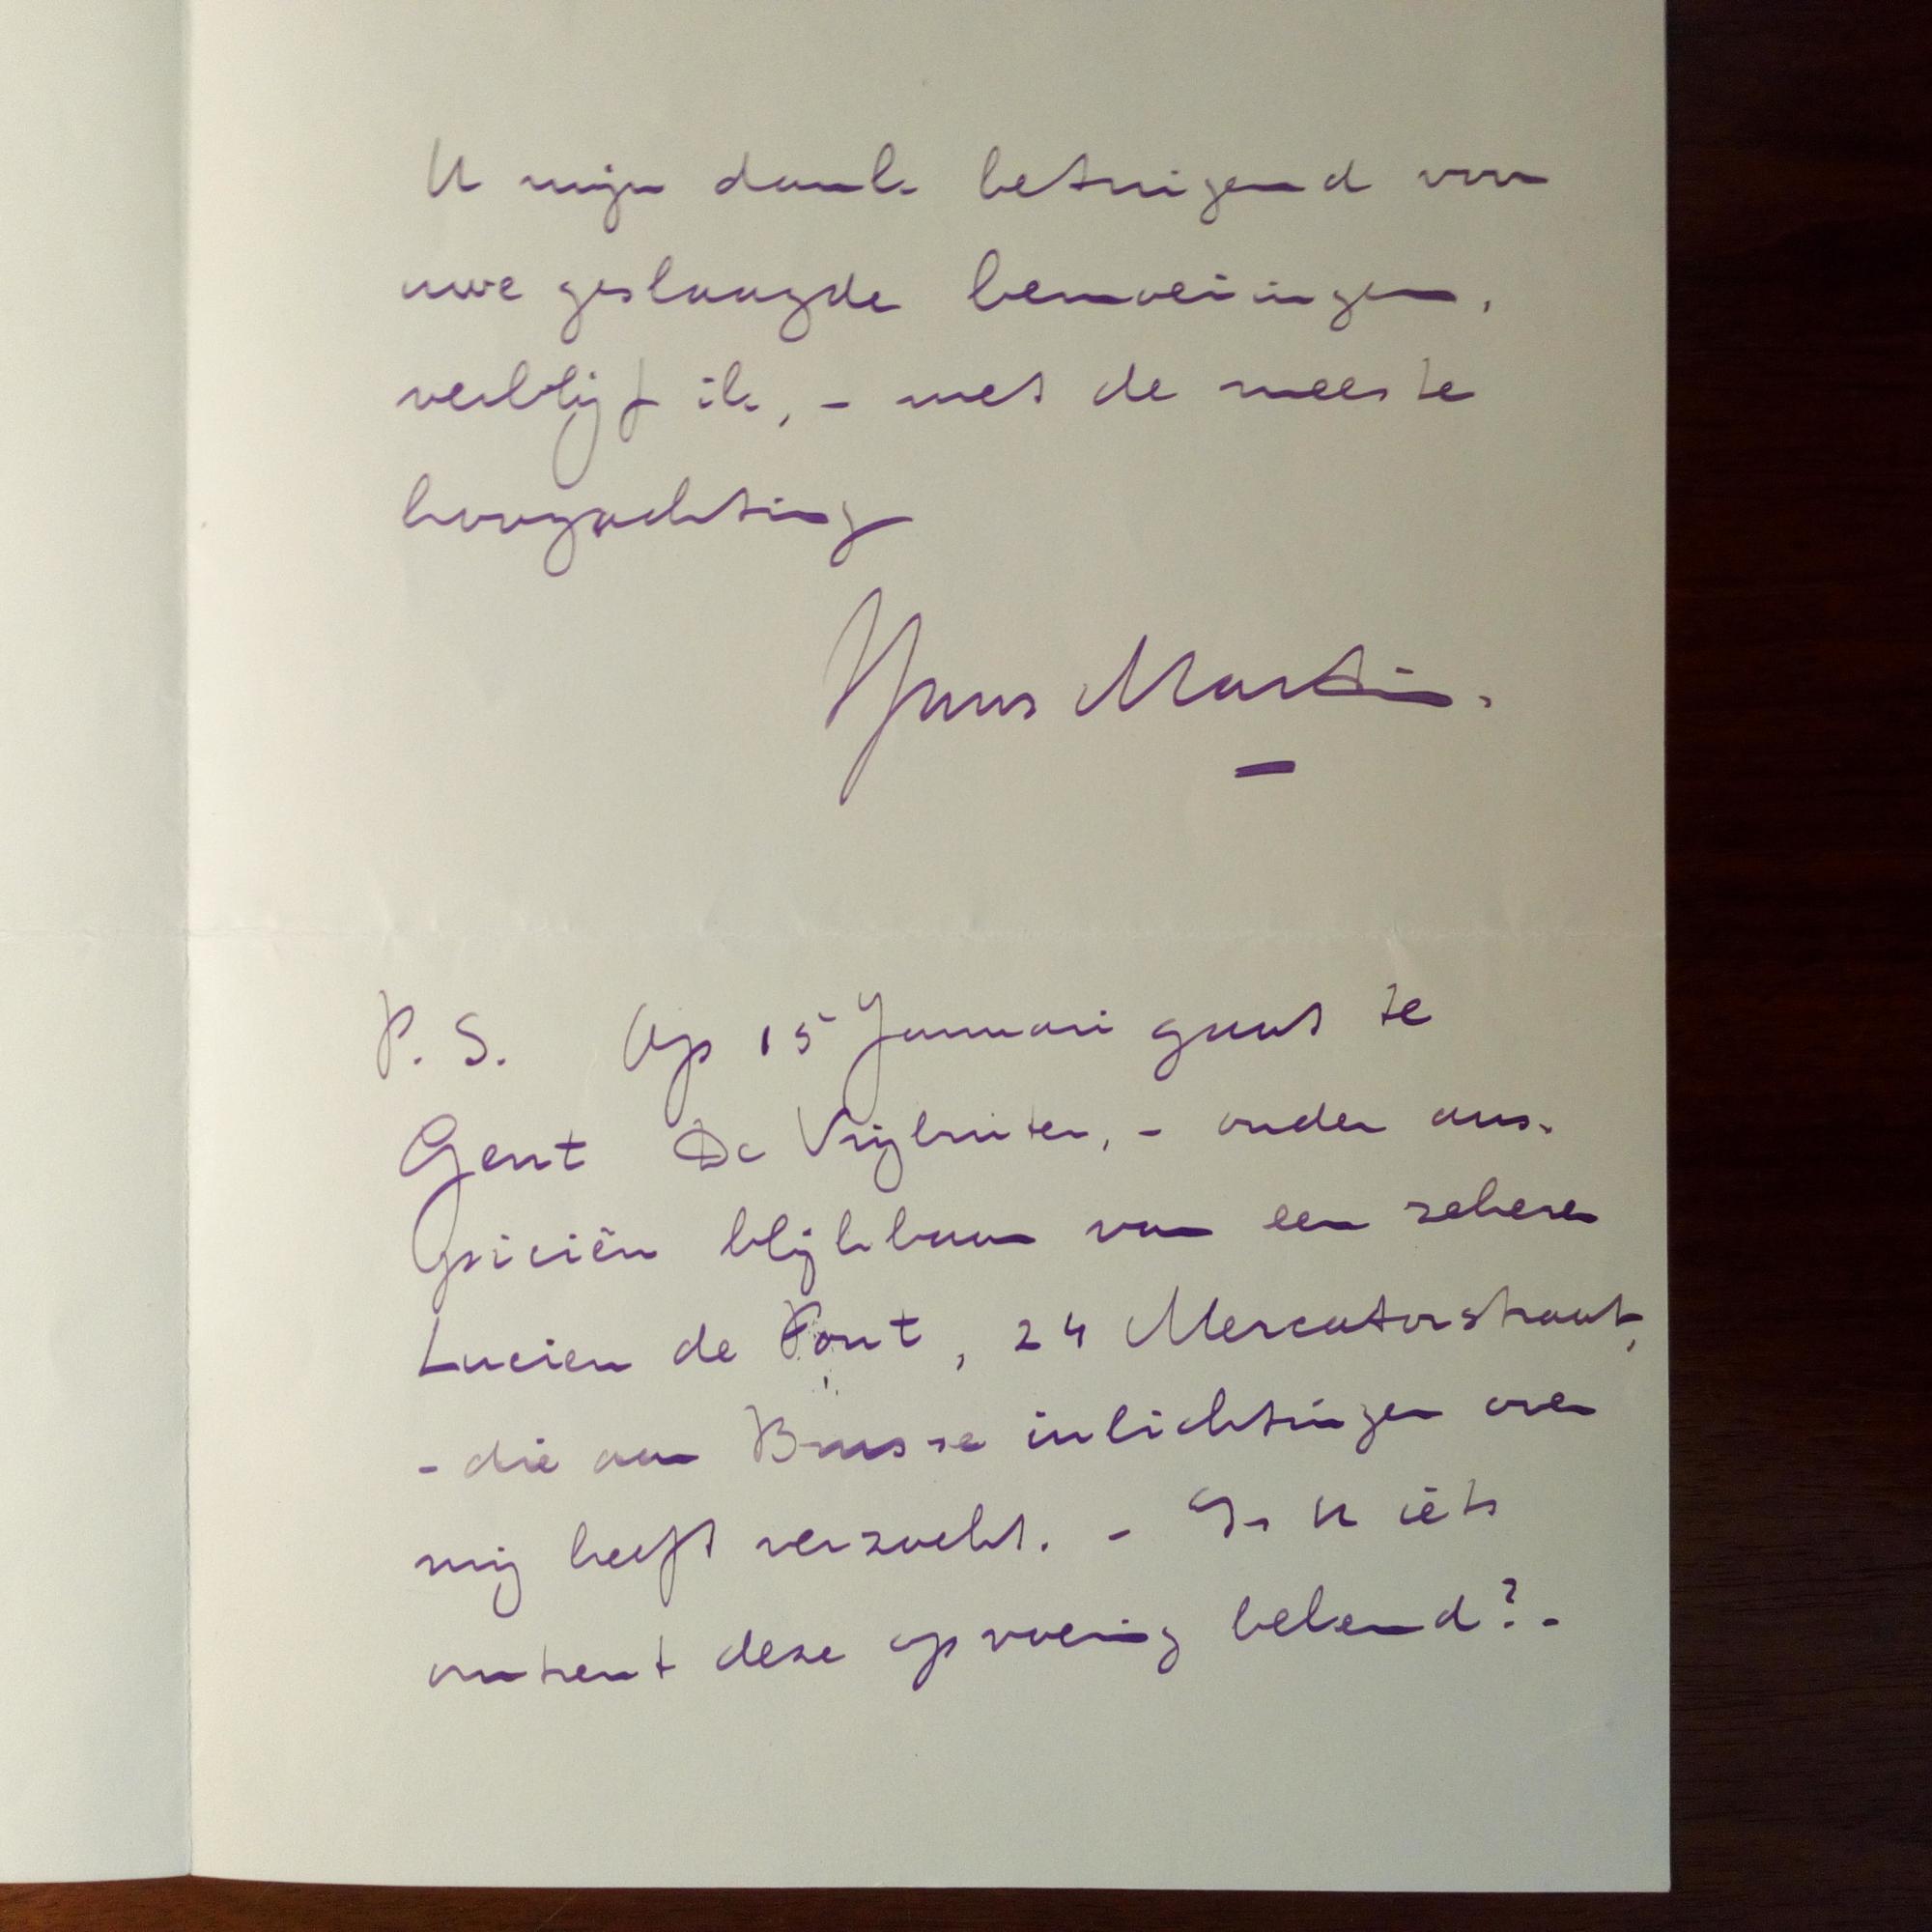 U mijn dank betuigend voor
uwe geslaagde bemoeiingen,
verblijf ik, - met de meeste
hoogachting
Hans Martin.
P. S. Op 15 Januari gaat te
Gent De Vrijbuiter, - onder aus-
piciën blijkbaar van een zekeren
Lucien de Pont, 24 Mercatorstraat,
- die aan Brusse inlichtingen over
mij heeft verzocht. - Is U iets
omtrent deze opvoering bekend? -